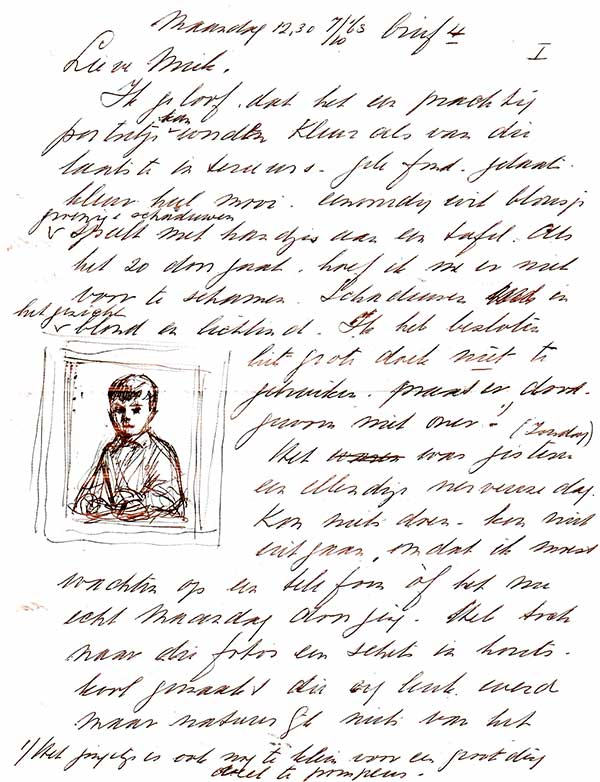 Maandag 12.30 7/10 '63 brief 4
I
Lieve Miek.
Ik geloof dat het een prachtig
portretje kan worden Kleur als van die
laatste interieurs. gele fond. gelaats
kleur heel mooi. eenvoudig wit blousje
groenige schaduwen
speelt met handjes aan een tafel. Als
het zo doorgaat. hoef ik me er niet
voor te schamen. Schaduwen in
het gezicht
blond en lichtend. Ik heb besloten
het grote doek niet te
gebruiken. praat er door-
gewoon niet over. 1) (Zondag)
Het was gisteren
een ellendige nerveuze dag.
Kon niets doen. kon niet
uitgaan, omdat ik moest
wachten op een telefoon of het nu
echt Maandag doorging. Heb toch
naar die fotos een schets in houts-
kool gemaakt die erg leuk werd
maar natuurlijk niets van het
1) Het jongetje is ook nog te klein voor een groot ding
doet te pompeus.